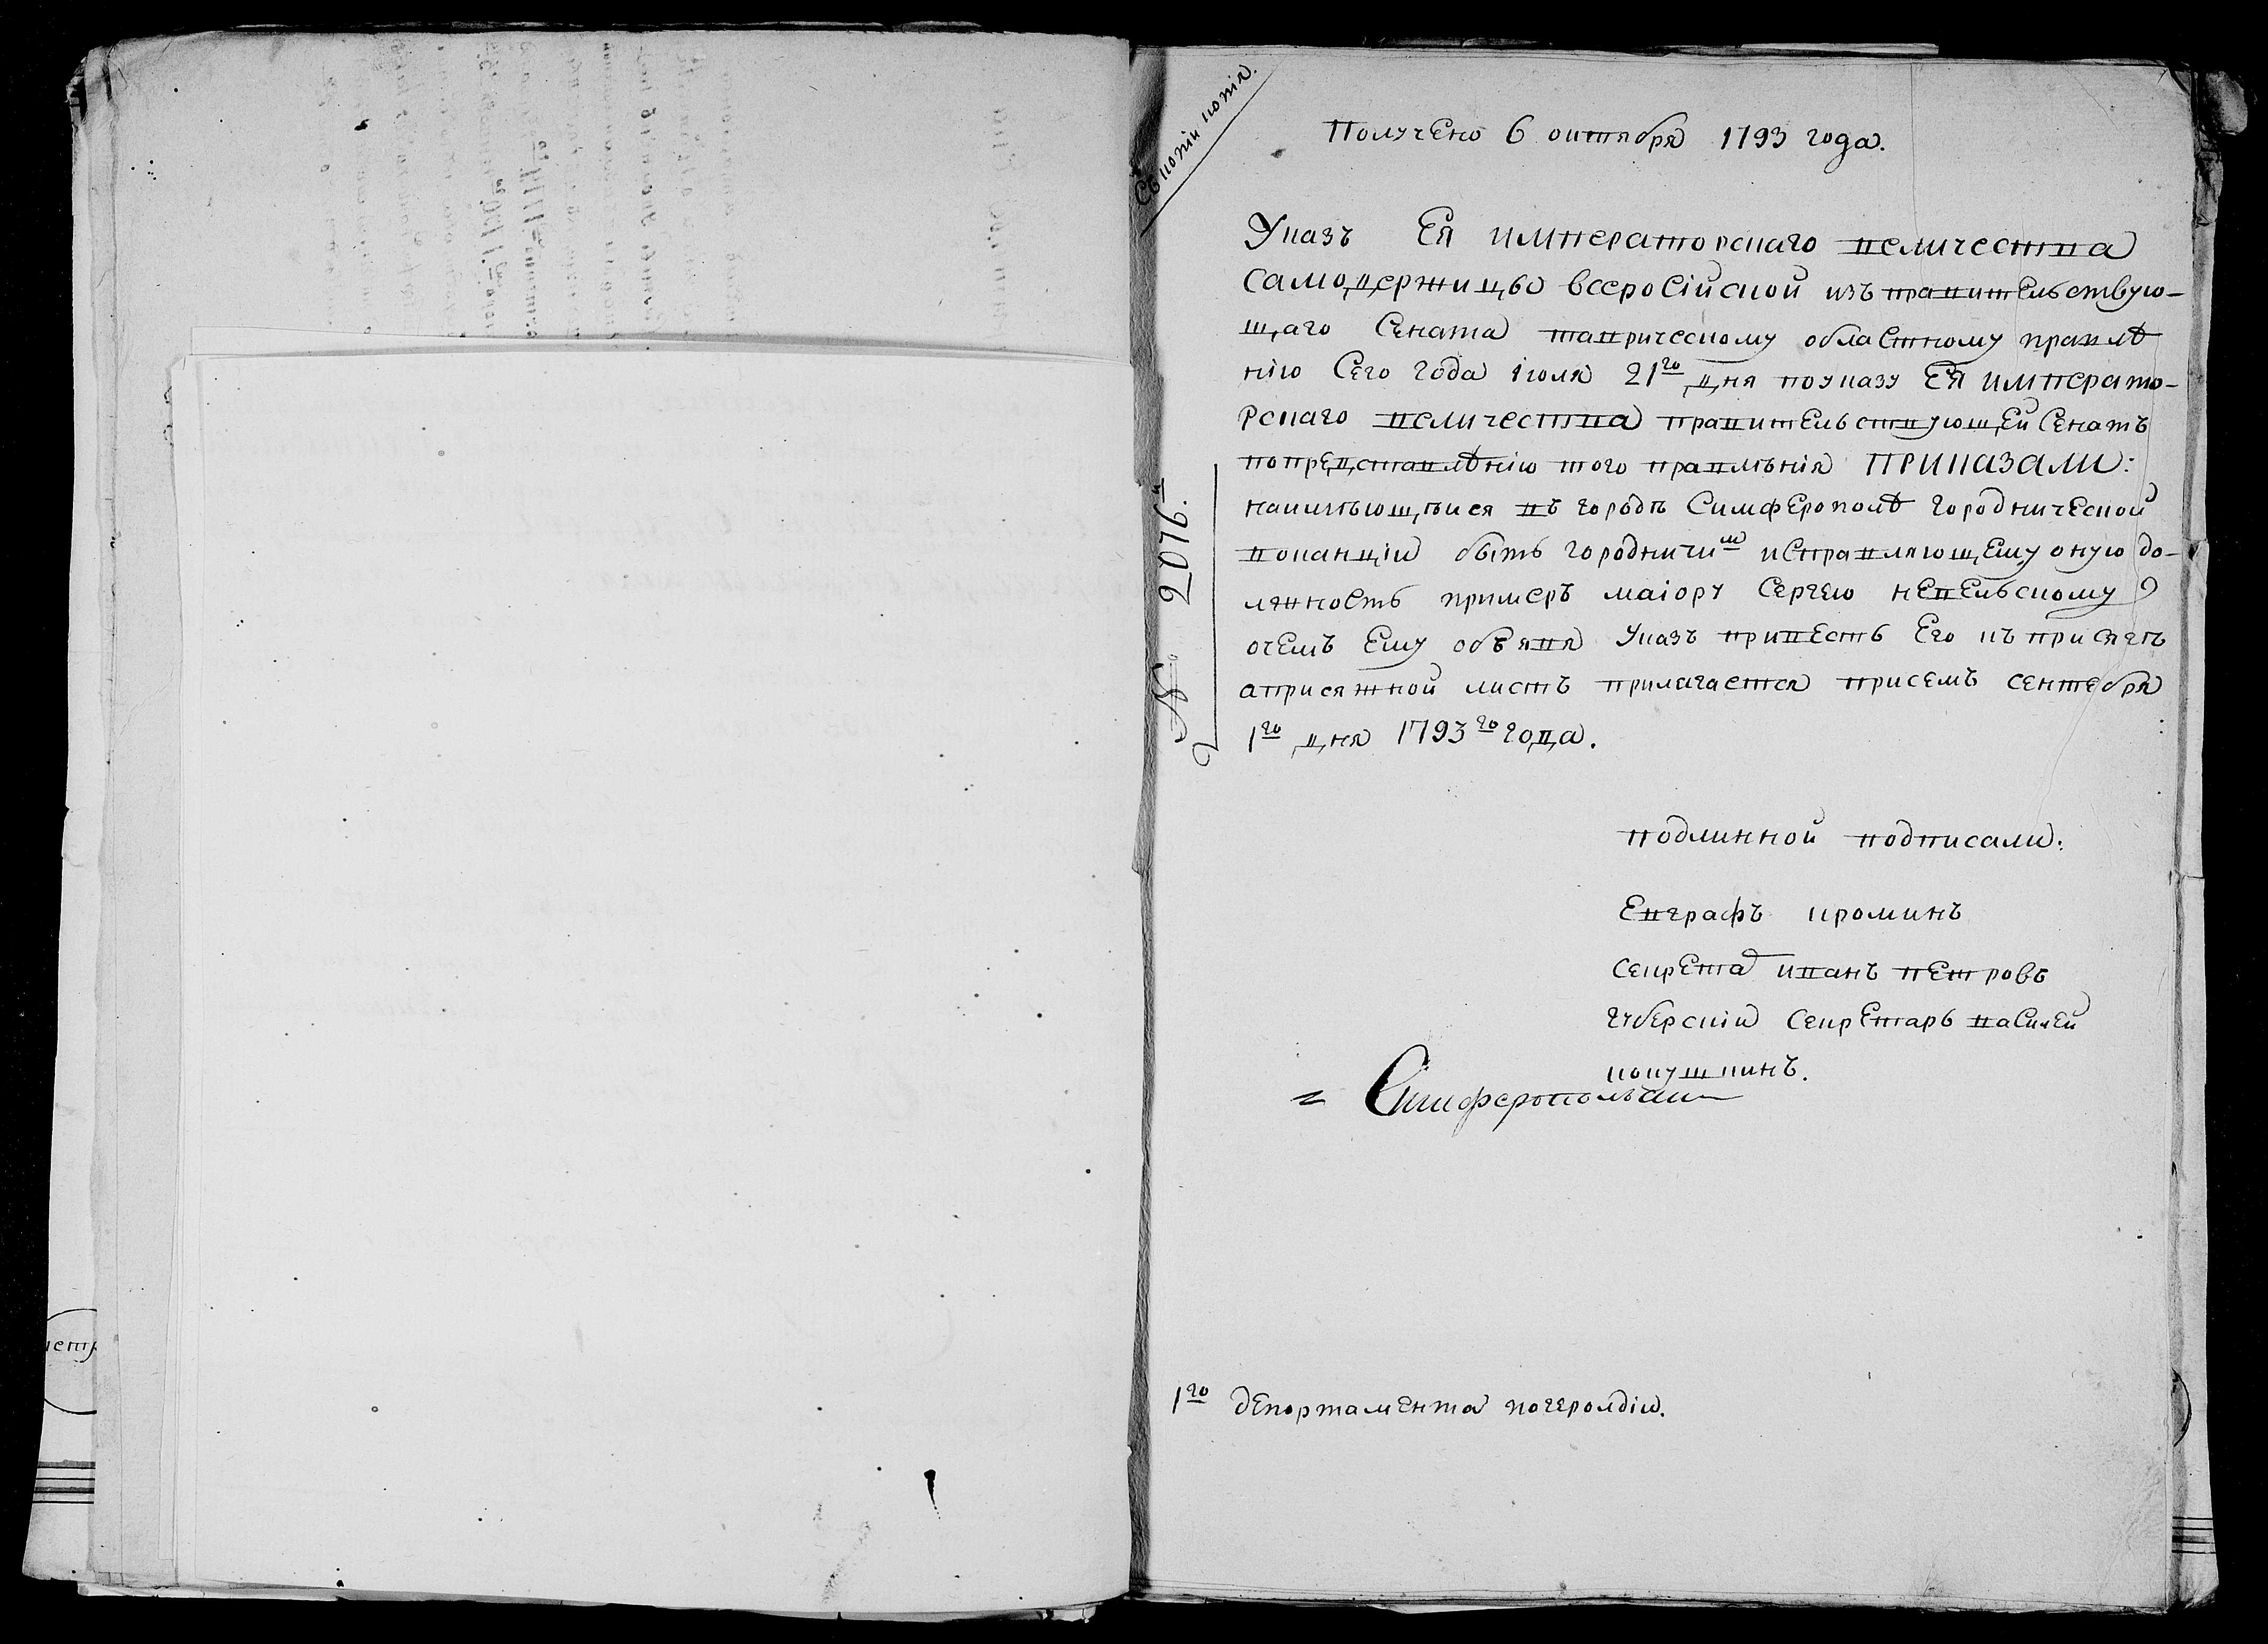 Съ копіи копія.
Получено 6 октября 1793 года.
Указъ Ея императорскаго величества
самодержицы всеросійской изъ правительствую-
щаго Сената таврическому областному правлѣ
нію Сего года іюля 21го дня по указу Ея императо-
рскаго величества правительствующей Сенатъ
по представлѣнію того правлѣнія ПРИКАЗАЛИ:
на имѣющѣися въ городѣ Симферополѣ городнической
ваканціи быть городничим исправляющему оную до-
лжность примеръ маіору Сергею невельскому
очемъ Ему объявя Указъ привесть Его къ присягѣ
а присяжной листъ прилагается присемъ сентебря
1го дня 1793го года.
№ 2076й
подлинной подписали:
Евграфъ кроминъ
секрета иванъ петровъ
губерскій секретарь василей
кокушкинъ.
1го депортамента погеролдіи.